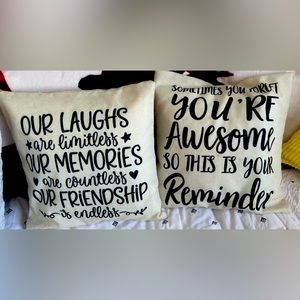 OUR LAUGHS
are limitless
OUR MEMORIES
are countless
OUR FRIENDSHIP
is endless
SOMETIMES YOU FORGET
YOU'RE
Awesome
SO THIS IS YOUR
Reminder